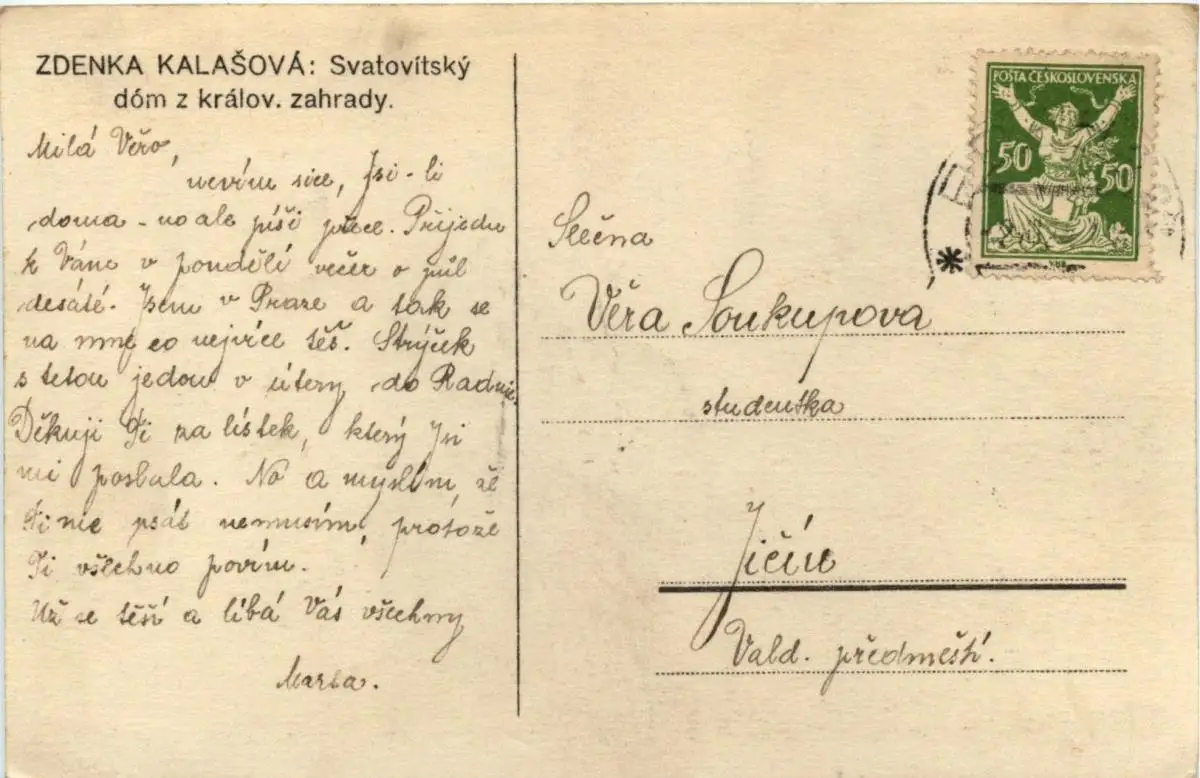 ZDENKA KALAŠOVÁ: Svatovítský
dóm z králov. zahrady.
Milá Věro,
nevím sice, Jsi-li
doma - no ale píši přece. Přijedu
k Vám v pondělí večer o půl
desáté. Jsem v Praze a tak se
na mne co nejvíce těš. Strýček
s tetou jedou v úterý do Radnic.
Děkuji Ti za lístek, který Jsi
mi poslala. No a myslím, že
Ti nic psát nemusím, protože
Ti všechno povím.
Už se těší a líbá Vás všechny
Marta.
POŠTA ČESKOSLOVENSKÁ
50 50
Slečna
Věra Soukupová
studentka
Jičín
Vald. předměstí.